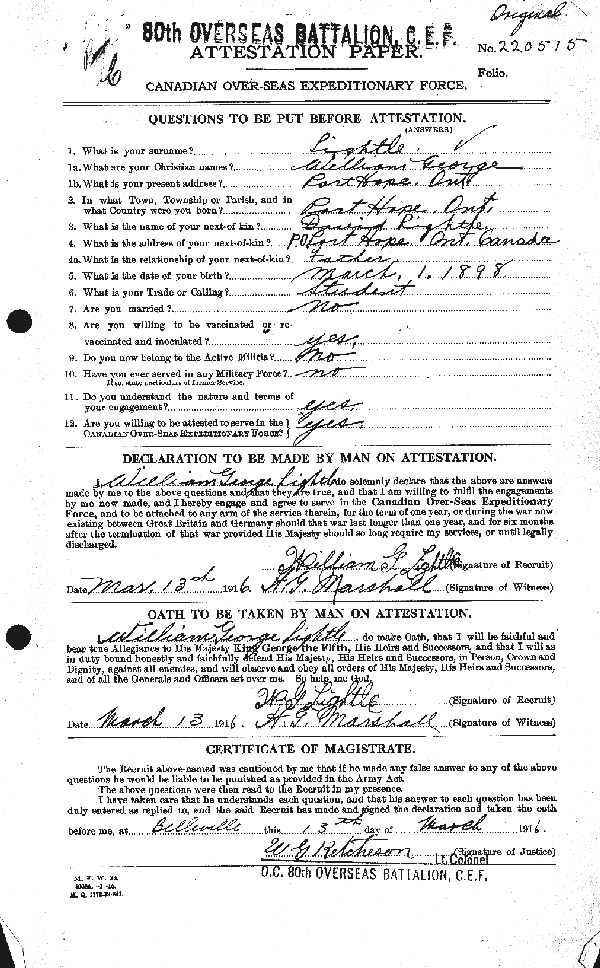 Original
80th OVERSEAS BATTALION, C.E.F.
ATTESTATION PAPER.
No. 220515
Folio.
CANADIAN OVER-SEAS EXPEDITIONARY FORCE.
QUESTIONS TO BE PUT BEFORE ATTESTATION.
(ANSWERS)
1. What is your surname? Lightle
1a. What are your Christian names? William George
1b. What is your present address? Port Hope. Ont.
2. In what Town, Township or Parish, and in
what Country were you born? Port Hope, Ont.
3. What is the name of your next-of-kin? Lightle
4. What is the address of your next-of-kin? P.O. Port Hope. Ont. Canada
4a. What is the relationship of your next-of-kin? Father
5. What is the date of your birth? March, 1. 1898
6. What is your Trade or Calling? Student
7. Are you married? No
8. Are you willing to be vaccinated or re-
vaccinated and inoculated? yes,
9. Do you now belong to the Active Militia? No
10. Have you ever served in any Military Force? no
If so, state particulars of former Service.
11. Do you understand the nature and terms of
your engagement? yes
12. Are you willing to be attested to serve in the
CANADIAN OVER-SEAS EXPEDITIONARY FORCE? yes
DECLARATION TO BE MADE BY MAN ON ATTESTATION.
I, William George Lightle do solemnly declare that the above are answers
made by me to the above questions and that they are true, and that I am willing to fulfil the engagements
by me now made, and I hereby engage and agree to serve in the Canadian Over-Seas Expeditionary
Force, and to be attached to any arm of the service therein, for the term of one year, or during the war now
existing between Great Britain and Germany should that war last longer than one year, and for six months
after the termination of that war provided His Majesty should so long require my services, or until legally
discharged.
William G Lightle (Signature of Recruit)
Date Mar. 13th 1916. H. G. Marshall (Signature of Witness)
OATH TO BE TAKEN BY MAN ON ATTESTATION.
I, William George Lightle, do make Oath, that I will be faithful and
bear true Allegiance to His Majesty King George the Fifth, His Heirs and Successors, and that I will as
in duty bound honestly and faithfully defend His Majesty, His Heirs and Successors, in Person, Crown and
Dignity, against all enemies, and will observe and obey all orders of His Majesty, His Heirs and Successors,
and of all the Generals and Officers set over me. So help me God.
W G Lightle (Signature of Recruit)
Date March 13 1916. H. G. Marshall (Signature of Witness)
CERTIFICATE OF MAGISTRATE.
The Recruit above-named was cautioned by me that if he made any false answer to any of the above
questions he would be liable to be punished as provided in the Army Act.
The above questions were then read to the Recruit in my presence.
I have taken care that he understands each question, and that his answer to each question has been
duly entered as replied to, and the said Recruit has made and signed the declaration and taken the oath
before me, at Belleville this 13th day of March 1916.
W G Ketcheson (Signature of Justice)
Lt. Colonel
O.C. 80th OVERSEAS BATTALION, C.E.F.
M. F. W. 23.